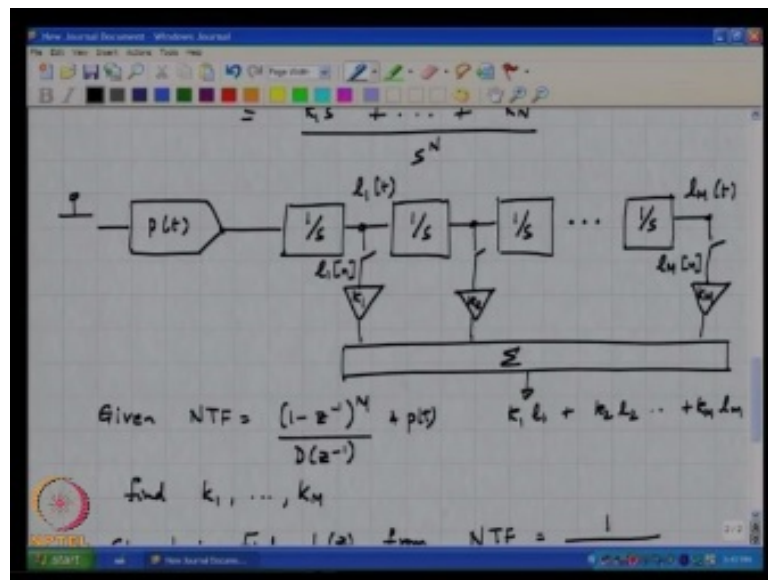 New Journal Document - Windows Journal
File Edit View Insert Actions Tools Help
Page Width
B I
= k₁s + ... + kN
s^N
l₁(t) lM(t)
p(t) 1/s 1/s 1/s ... 1/s
l₁[n] lM[n]
k₁ k₂ kM
Σ
Given NTF = (1-z⁻¹)^M + p(t) k₁l₁ + k₂l₂ .. + kMlM
D(z⁻¹)
find k₁, ..., kM
from NTF = 1
2/2
NPTEL
start New Journal Docum...